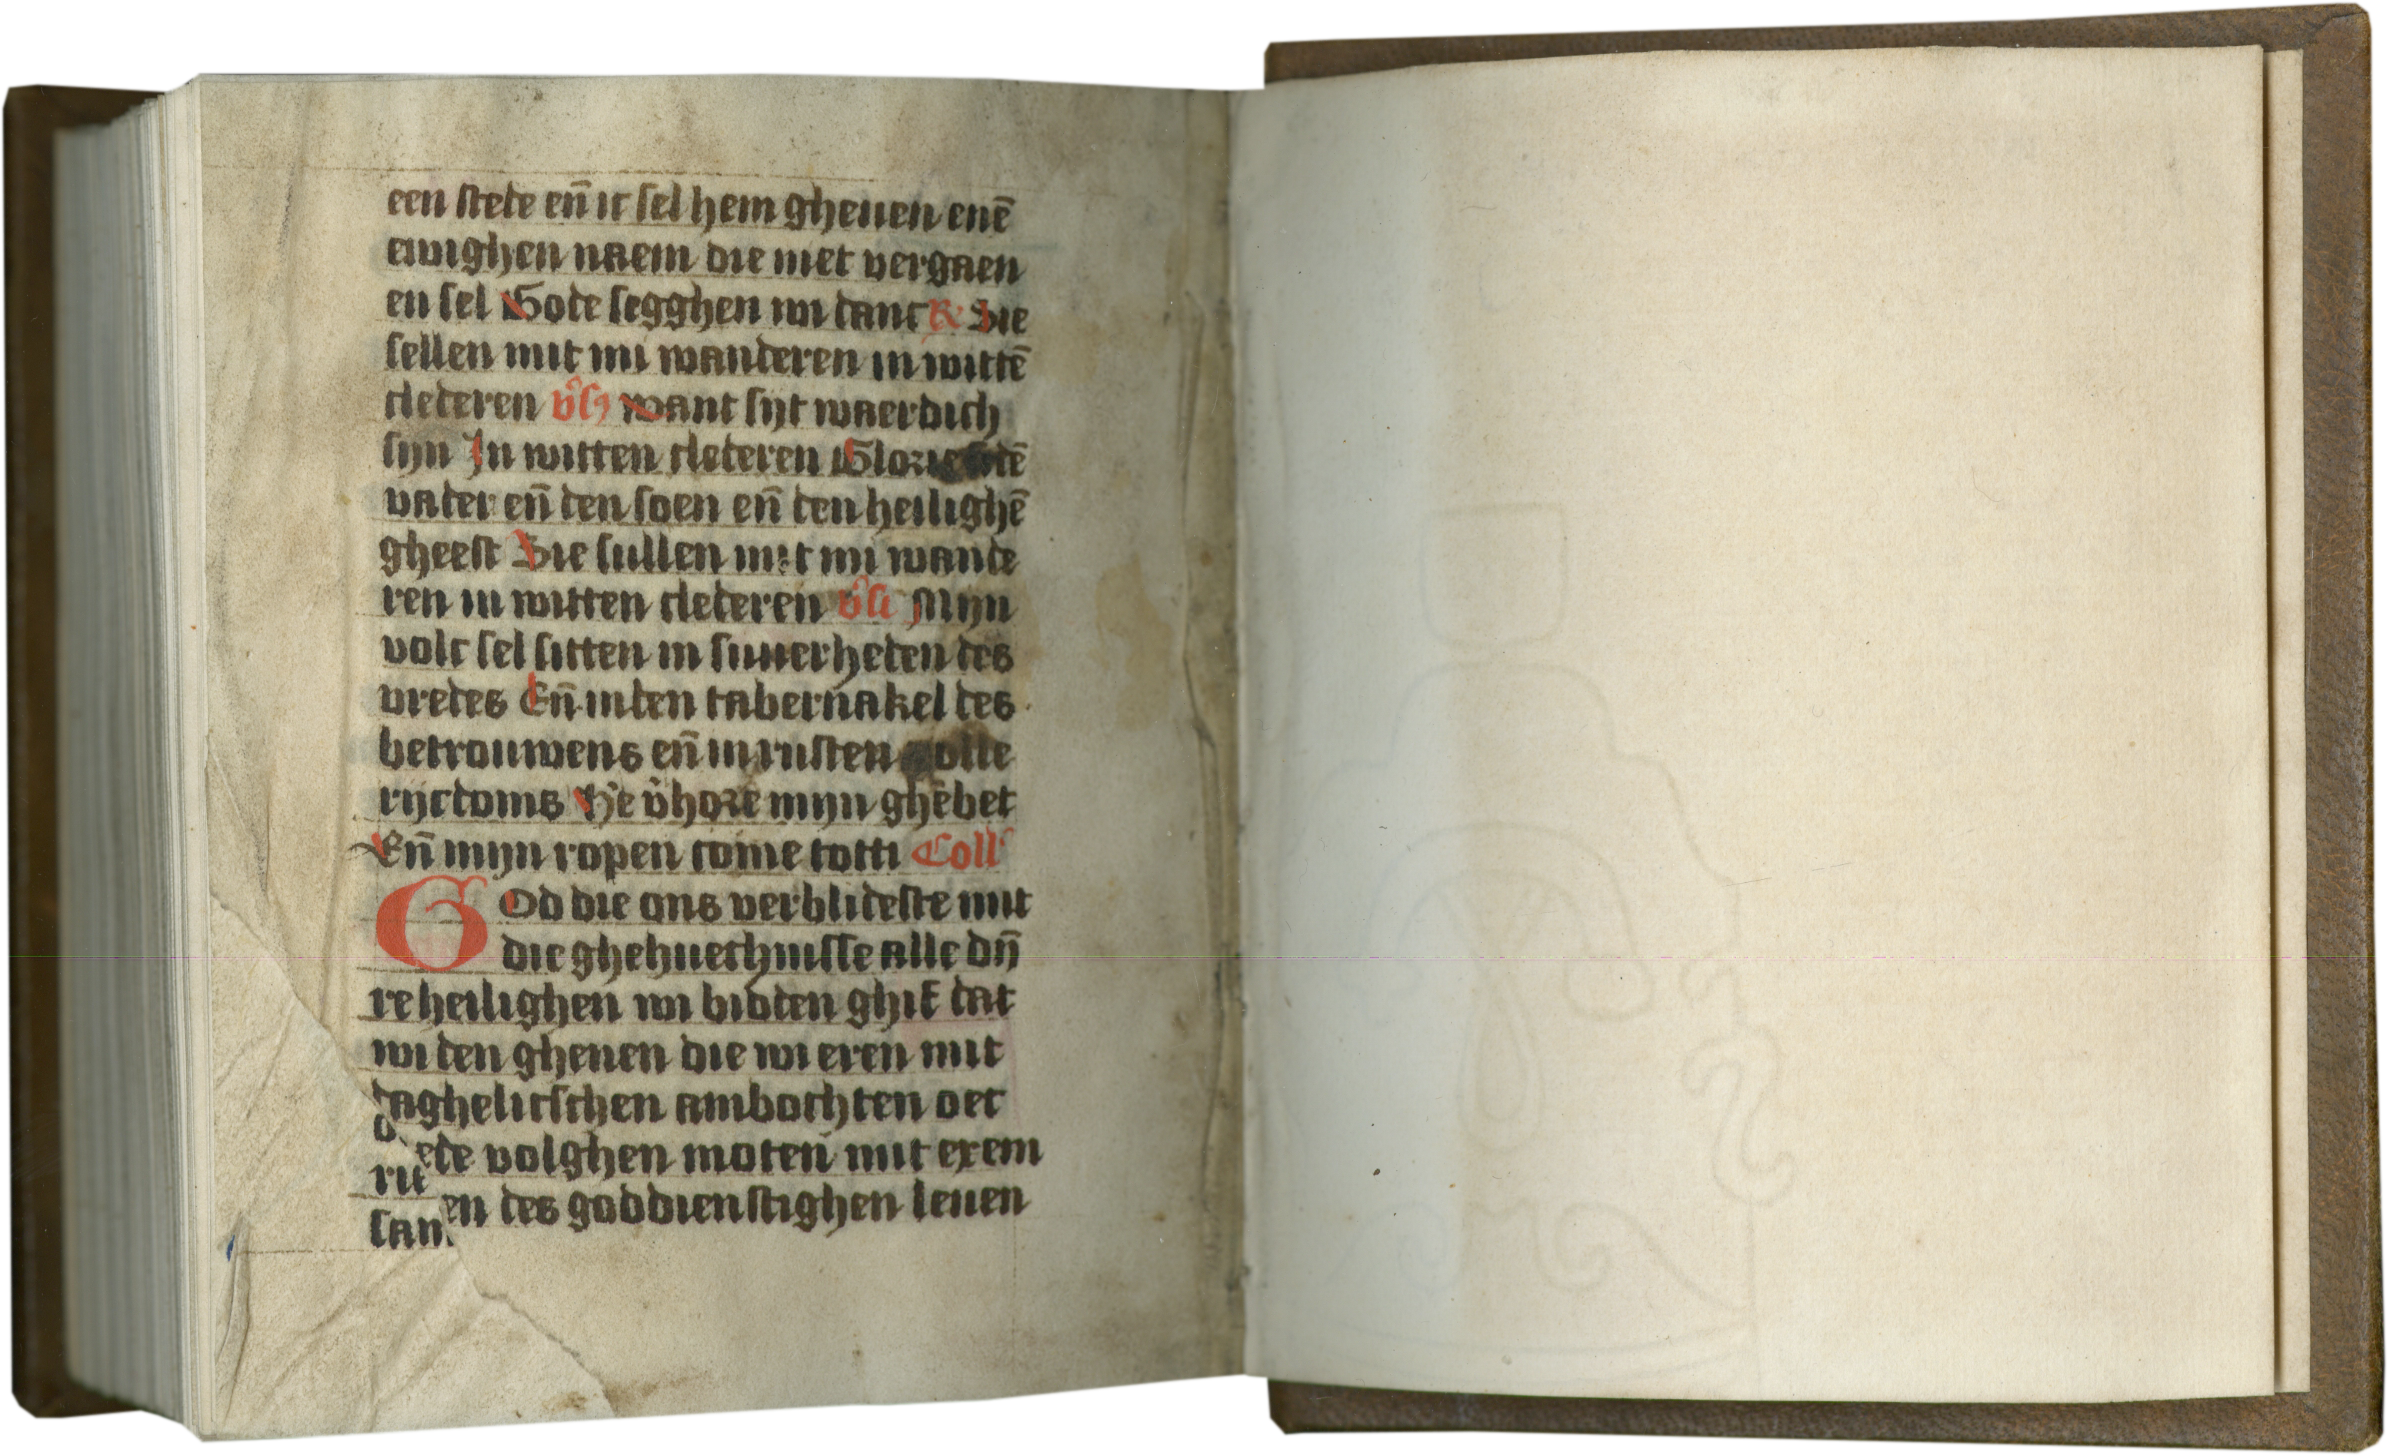 een stede en̄ ic sel hem gheuen enē
ewighen naem die niet vergaen
en sel Gode segghen wi danc R Sie
sellen mit mi wanderen in wittē
clederen v̾s want sijt waerdich
sijn In witten clederen Glorie dē
vader en̄ den soen en̄ den heilighē
gheest Sie sullen mit mi wande
ren in witten clederen v̾s Mijn
volc sel sitten in suuerheden des
vredes En̄ in den tabernakel des
betrouwens en̄ in rusten volle
rijcdoms He v̾hore mijn ghebet
En̄ mijn ropen come totti Coll'
God die ons verblideste mit
die ghehuechnisse alle dn̄
re heilighen wi bidden ghif dat
wi den ghenen die wi eren mit
daghelicschen ambochten oec
ede volghen moten mit exem
en des goddienstighen leuen